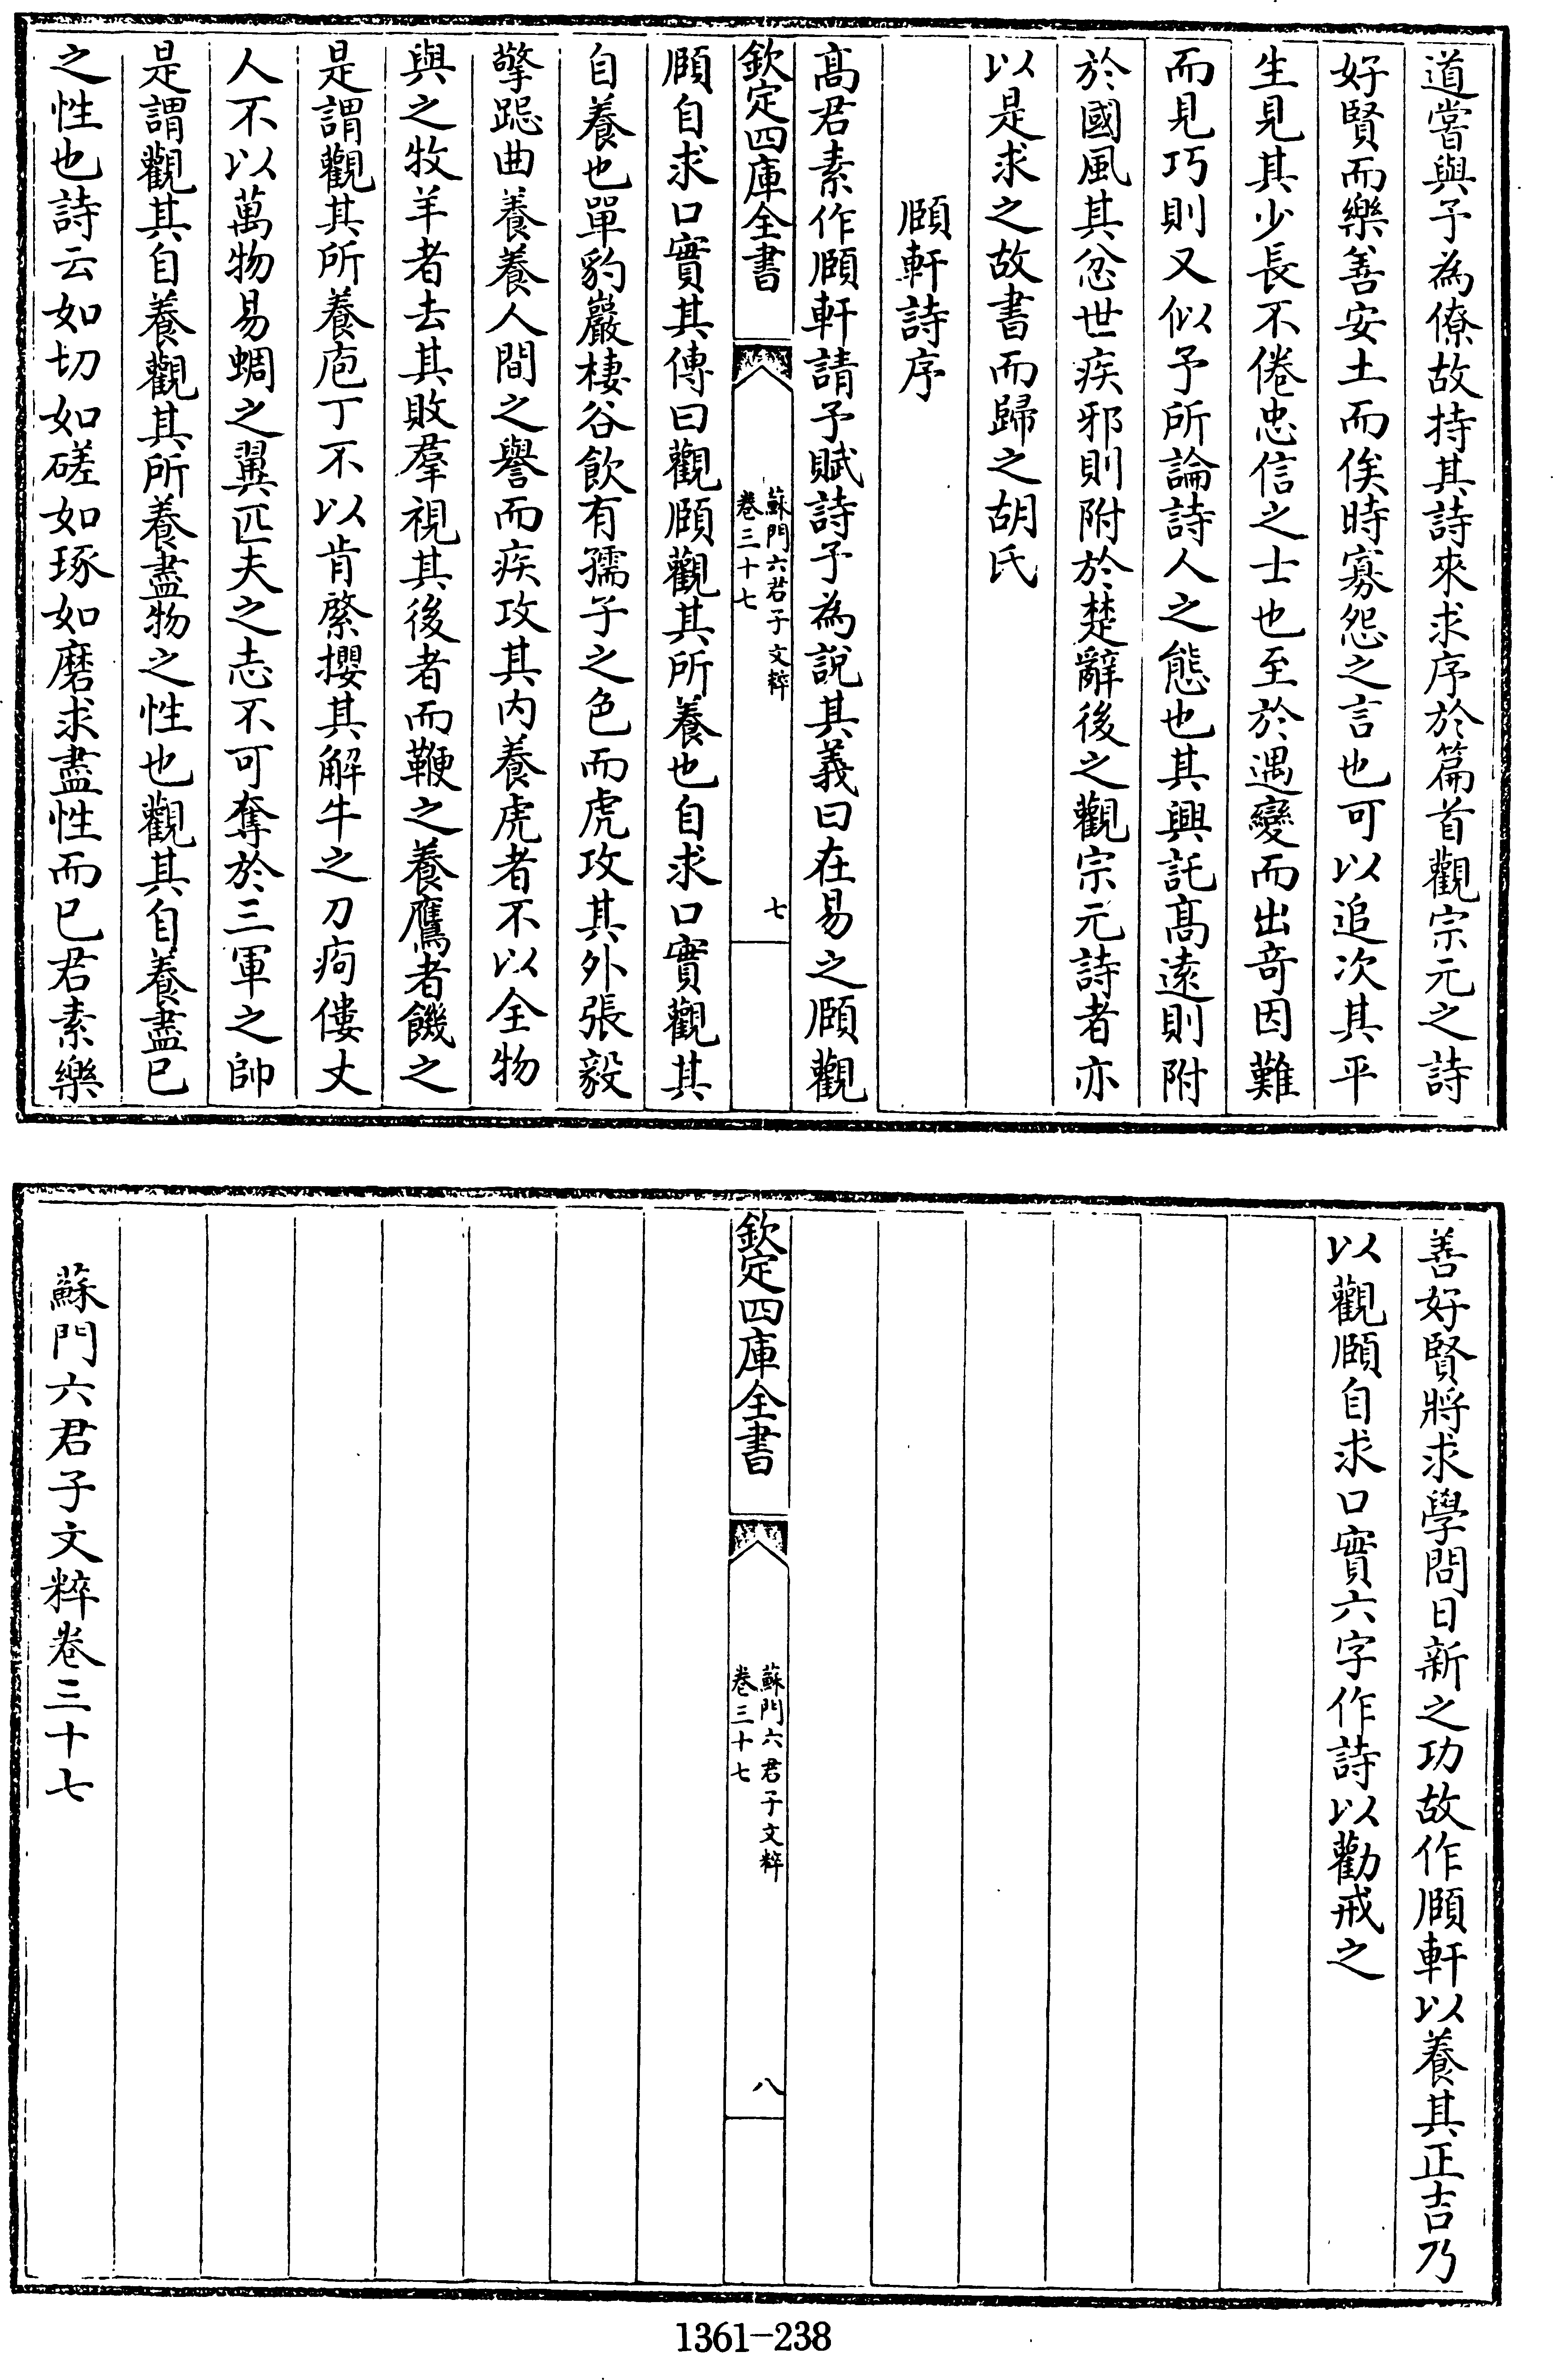 道嘗與予為僚故持其詩來求序於篇首觀宗元之詩
好賢而樂善安土而俟時寡怨之言也可以追次其平
生見其少長不倦忠信之士也至於遇變而出竒因難
而見巧則又似予所論詩人之態也其興託髙遠則附
於國風其忿世疾邪則附於楚辭後之觀宗元詩者亦
以是求之故書而歸之胡氏
頤軒詩序
髙君素作頤軒請予賦詩予為說其義曰在易之頤觀
欽定四庫全書
蘇門六君子文粹
卷三十七
七
頤自求口實其傳曰觀頤觀其所養也自求口實觀其
自養也單豹巖棲谷飲有孺子之色而虎攻其外張毅
擎跽曲養養人間之譽而疾攻其内養虎者不以全物
與之牧羊者去其敗羣視其後者而鞭之養鷹者饑之
是謂觀其所養庖丁不以肯綮攖其解牛之刀痀僂丈
人不以萬物易蜩之翼匹夫之志不可奪於三軍之帥
是謂觀其自養觀其所養盡物之性也觀其自養盡已
之性也詩云如切如磋如琢如磨求盡性而已君素樂
善好賢將求學問日新之功故作頤軒以養其正吉乃
以觀頤自求口實六字作詩以勸戒之
欽定四庫全書
蘇門六君子文粹
卷三十七
八
蘇門六君子文粹卷三十七
1361-238